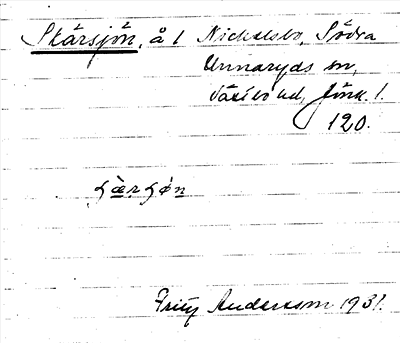 Skärsjön, å 1 Nickelsbo, Södra
Unnaryds sn,
Västbo hd, Jönk. l.
120.
ʂæ̀rʂø̀n
Fritz Andersson 1931.